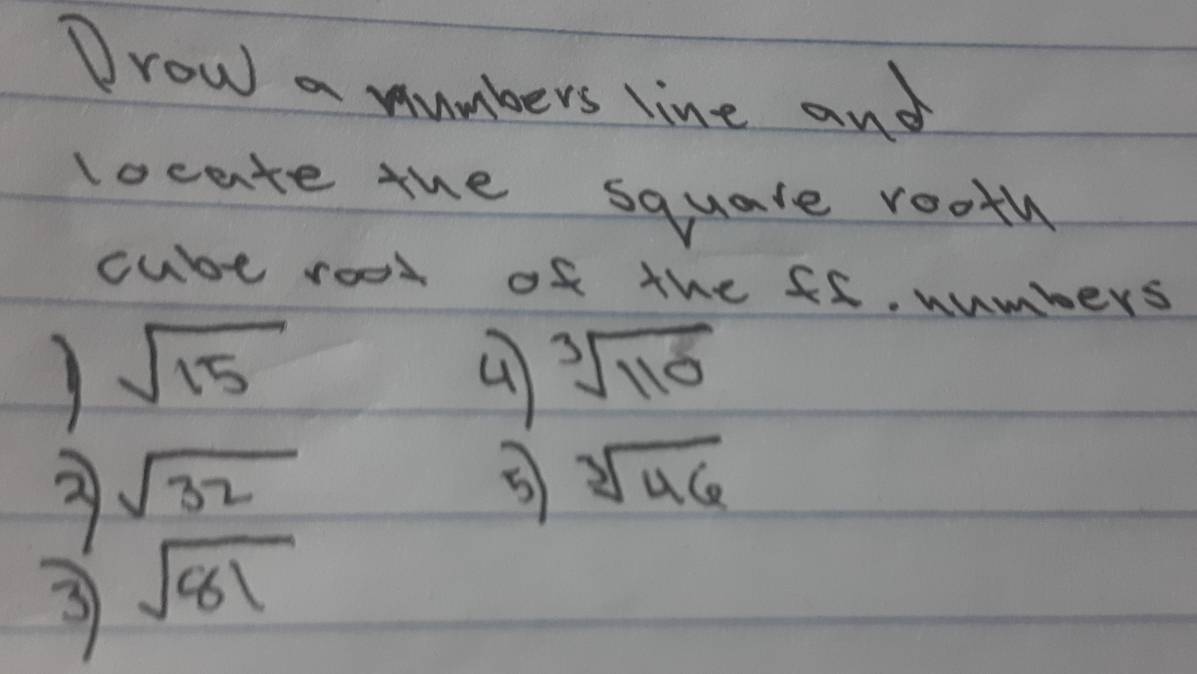 Drow a numbers line and
locate the square rooth
cube root of the ff. numbers
1) √15 4) ³√110
2) √32 5) ³√46
3) √81